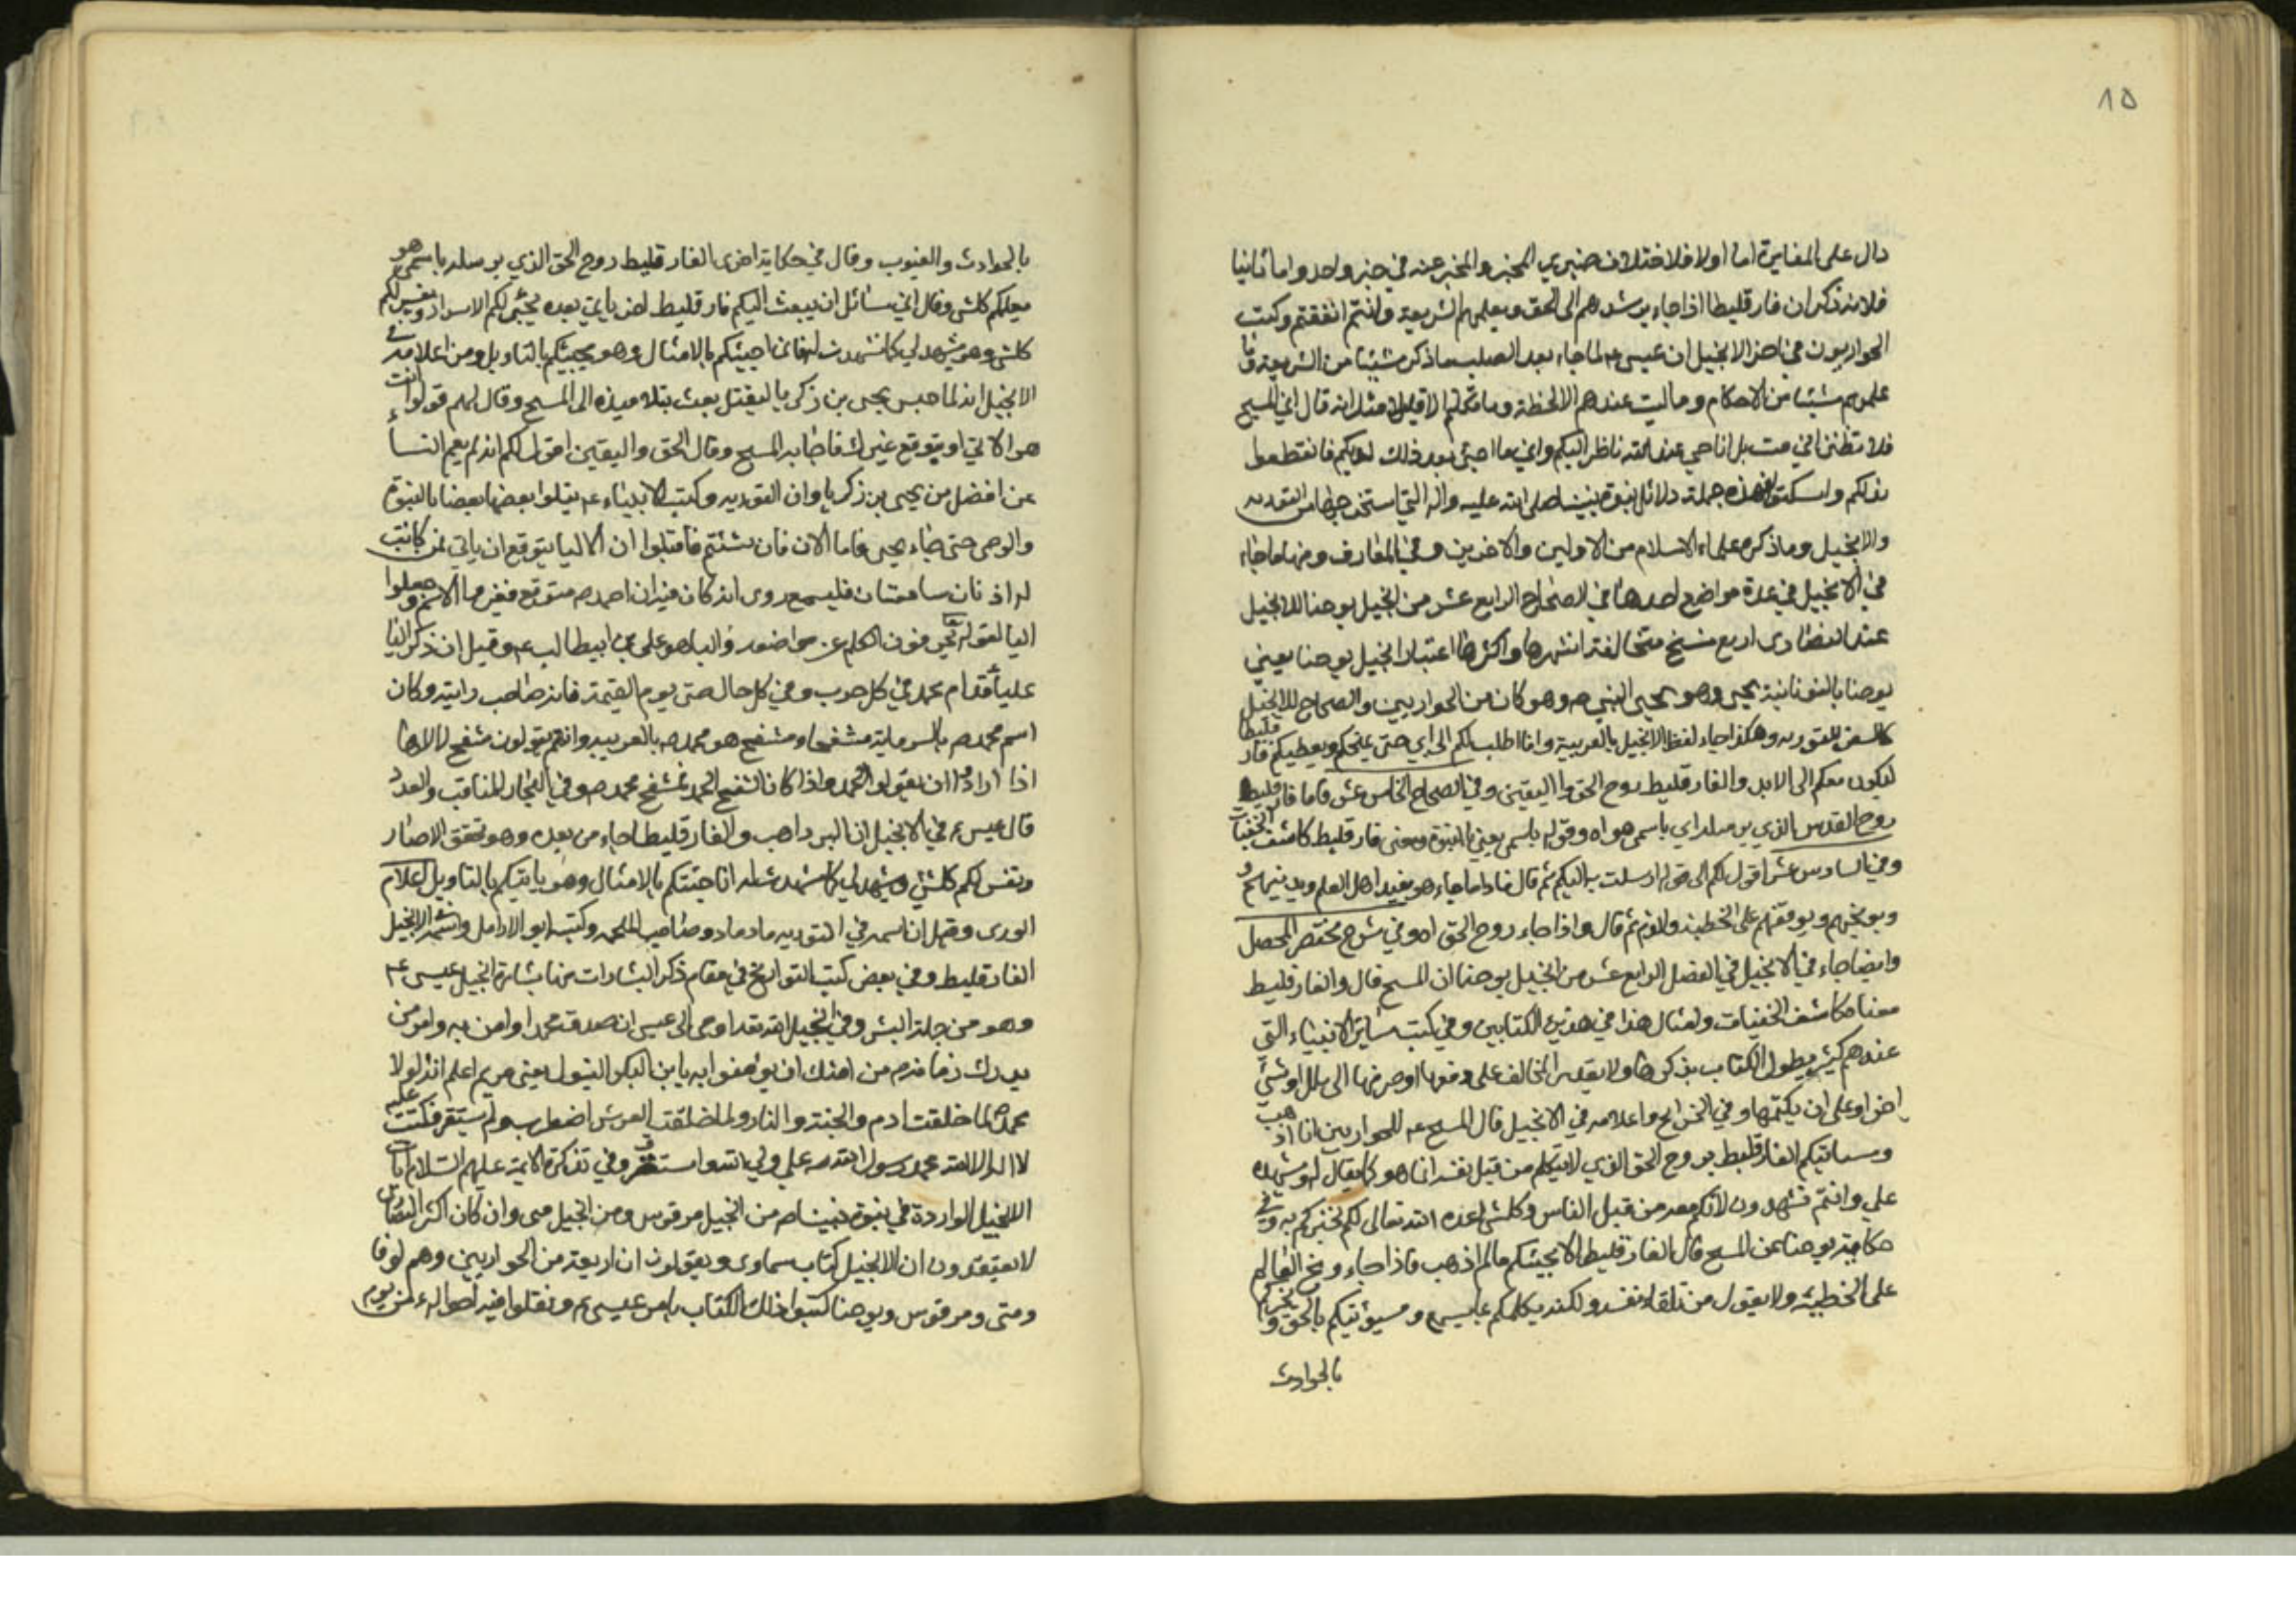 ١٥
دال على المغايرة اما اولا فلاختلاف ضميري المخبر والمخبر عنه في خبر واحد واما ثانيا
فلانه ذكر ان فارقليطا اذا جاء يرشدهم الى الحق ويعلمهم الشريعة وانتم اتفقتم وكتب
الحواريون في اخر الانجيل ان عيسى ع لما جاء بعد الصلب ما ذكر شيئا من الشريعة وما
علمهم شيئا من الاحكام وما لبث عندهم الا لحظة وما تكلم الا قليلا مثل انه قال اني المسيح
فلا تظنوا اني ميت بل انا حي عند الله ناظر اليكم واني ما اجئ بعد ذلك اليكم فانقطعوا
هذه جملة دلائل نبوة نبينا صلى الله عليه واله التي استخرجها من التوريه
والانجيل وما ذكره علماء الاسلام من الاولين والاخرين وفي المعارف ومنها ما جاء
في الانجيل في عدة مواضع احدها في الصحاح الرابع عشر من انجيل يوحنا للانجيل
عند النصارى اربع نسخ متخالفة اشهرها واكثرها اعتبارا انجيل يوحنا يعني
يوحنا باليونانية يحيى وهو يحيى النبي ص وهو كان من الحواريين والصحاح للانجيل
كالسفر للتوريه وهكذا جاء لفظ الانجيل بالعربية وانا اطلب لكم الى ابي حتى يمنحكم ويعطيكم فارقليطا
ليكون معكم الى الابد والفارقليط روح الحق واليقين وفي الصحاح الخامس عشر فاما فارقليط
روح القدس الذي يرسله ابي باسمي هو اه وقوله باسمي يعني بالنبوة ومعنى فارقليط كاشف الخفيات
وفي السادس عشر اقول لكم الى قوله ارسلت به اليكم ثم قال فاذا ما جاء هو يفيد اهل العلم ويدينهم
ويوبخهم ويوقفهم على الخطية والاثم ثم قال واذا جاء روح الحق اه وفي شرح مختصر المحصل
وايضا جاء في الانجيل في الفصل الرابع عشر من انجيل يوحنا ان المسيح قال والفارقليط
معناه كاشف الخفيات وامثال هذا في هذين الكتابين وفي كتب سائر الانبياء التي
عندهم كثير يطول الكتاب بذكرها ولا يقدر المخالف على دفعها او صرفها الى ملك او شئ
اخر او على ان يكتمها وفي الخرايج واعلامه في الانجيل قال المسيح ع للحواريين انا اذهب
وسياتيكم الفارقليط بروح الحق الذي لا يتكلم من قبل نفسه انما هو كما يقال له ويشهد
علي وانتم تشهدون لانكم معه من قبل الناس وكلشئ اعده الله تعالى لكم يخبركم به وفي
حكاية يوحنا عن المسيح قال الفارقليط لا يجيئكم ما لم اذهب فاذا جاء وبخ العالم
على الخطيئة ولا يقول من تلقاء نفسه ولكنه يكلمكم بما يسمع وسيؤتيكم بالحق ويخبركم
بالحوادث
بالحوادث والغيوب وقال في حكاية اخرى الفارقليط روح الحق الذي يرسله باسمي هو
يعلمكم كلشئ وقال اني سائل ان يبعث اليكم فارقليط اخر ياتي بعده يحيى لكم الاسرار ويفسر لكم
كلشئ وهو يشهد لي كما شهدت له فاني اجيئكم بالامثال وهو يجيئكم بالتاويل ومن اعلامه في
الانجيل انه لما حبس يحيى بن زكريا ليقتل بعث بتلاميذه الى المسيح وقال لهم قولوا انت
هو الاتي او يتوقع غيرك فاجابه المسيح وقال الحق واليقين اقول لكم انه لم يقم النساء
عن افضل من يحيى بن زكريا وان التوريه وكتب الانبياء ع يتلوا بعضها بعضا بالنبوة
والوحي حتى جاء يحيى فاما الان فان شئتم فاقبلوا ان الاليا يتوقع ان ياتي فمن كانت
له اذنان سامعتان فليسمع روى انه كان فيه ان احمد ص متوقع فغيروا الاسم وجعلوا
اليا لقوله يحرفون الكلم عن مواضعه واليا هو علي بن ابيطالب ع وقيل انه ذكر اليا
علياً قدام محمد في كل حرب وفي كل حال حتى يوم القيمة فانه صاحب رايته وكان
اسم محمد ص بالسريانية مشفحا ومشفح هو محمد ص بالعربيه وانهم يقولون شفح لالاها
اذا ارادوا ان يقولوا الحمد لله واذا كان الشفح الحمد فمشفح محمد ص وفي البحار المناقب والعدد
قال عيسى ع في الانجيل ان البر ذاهب والفارقليط جاء من بعده وهو يخفف الاصار
ويفسر لكم كلشئ ويشهد لي كما شهدت له انا جئتكم بالامثال وهو ياتيكم بالتاويل اعلام
الورى وقيل ان اسمه في التوريه مادماد وصاحب الملحمه وكنيته ابو الارامل واسمه في الانجيل
الفارقليط وفي بعض كتب التواريخ في مقام ذكر البشارات منها بشارة انجيل عيسى ع
وهو من جلة البشر وفي انجيل الله تعد اوحى الى عيسى ان صدق محمدا وامن به وامر من
يدرك زمانه من امتك ان يؤمنوا به يا بن البكر البتول يعني مريم اعلم انه لولا
محمد ص لما خلقت ادم والجنة والنار ولما خلقت العرش اضطرب ولم يستقر فكتبت عليه
لا اله الا الله محمد رسول الله ص علي ولي الله واستقر وفي تذكرة الائمة عليهم السلام
الانجيل الواردة في نبوة نبينا ص من انجيل مرقوس ومن انجيل متى وان كان اكثر النصارى
لا يعتقدون ان الانجيل كتاب سماوي ويقولون ان اربعة من الحواريين وهم لوقا
ومتى ومرقوس ويوحنا كتبوا ذلك الكتاب بامر عيسى ع ونقلوا فيه احواله ع من يوم